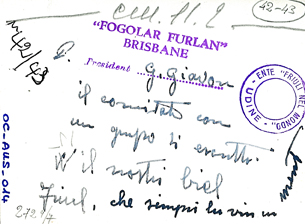 42-43
"FOGOLAR FURLAN"
BRISBANE
President G. Giavon
ENTE "FRIULI NEL MONDO" UDINE
il comitato con
un grupo di
W il nostri biel
Friul, che sempri lu vin in
OC-AUS-014